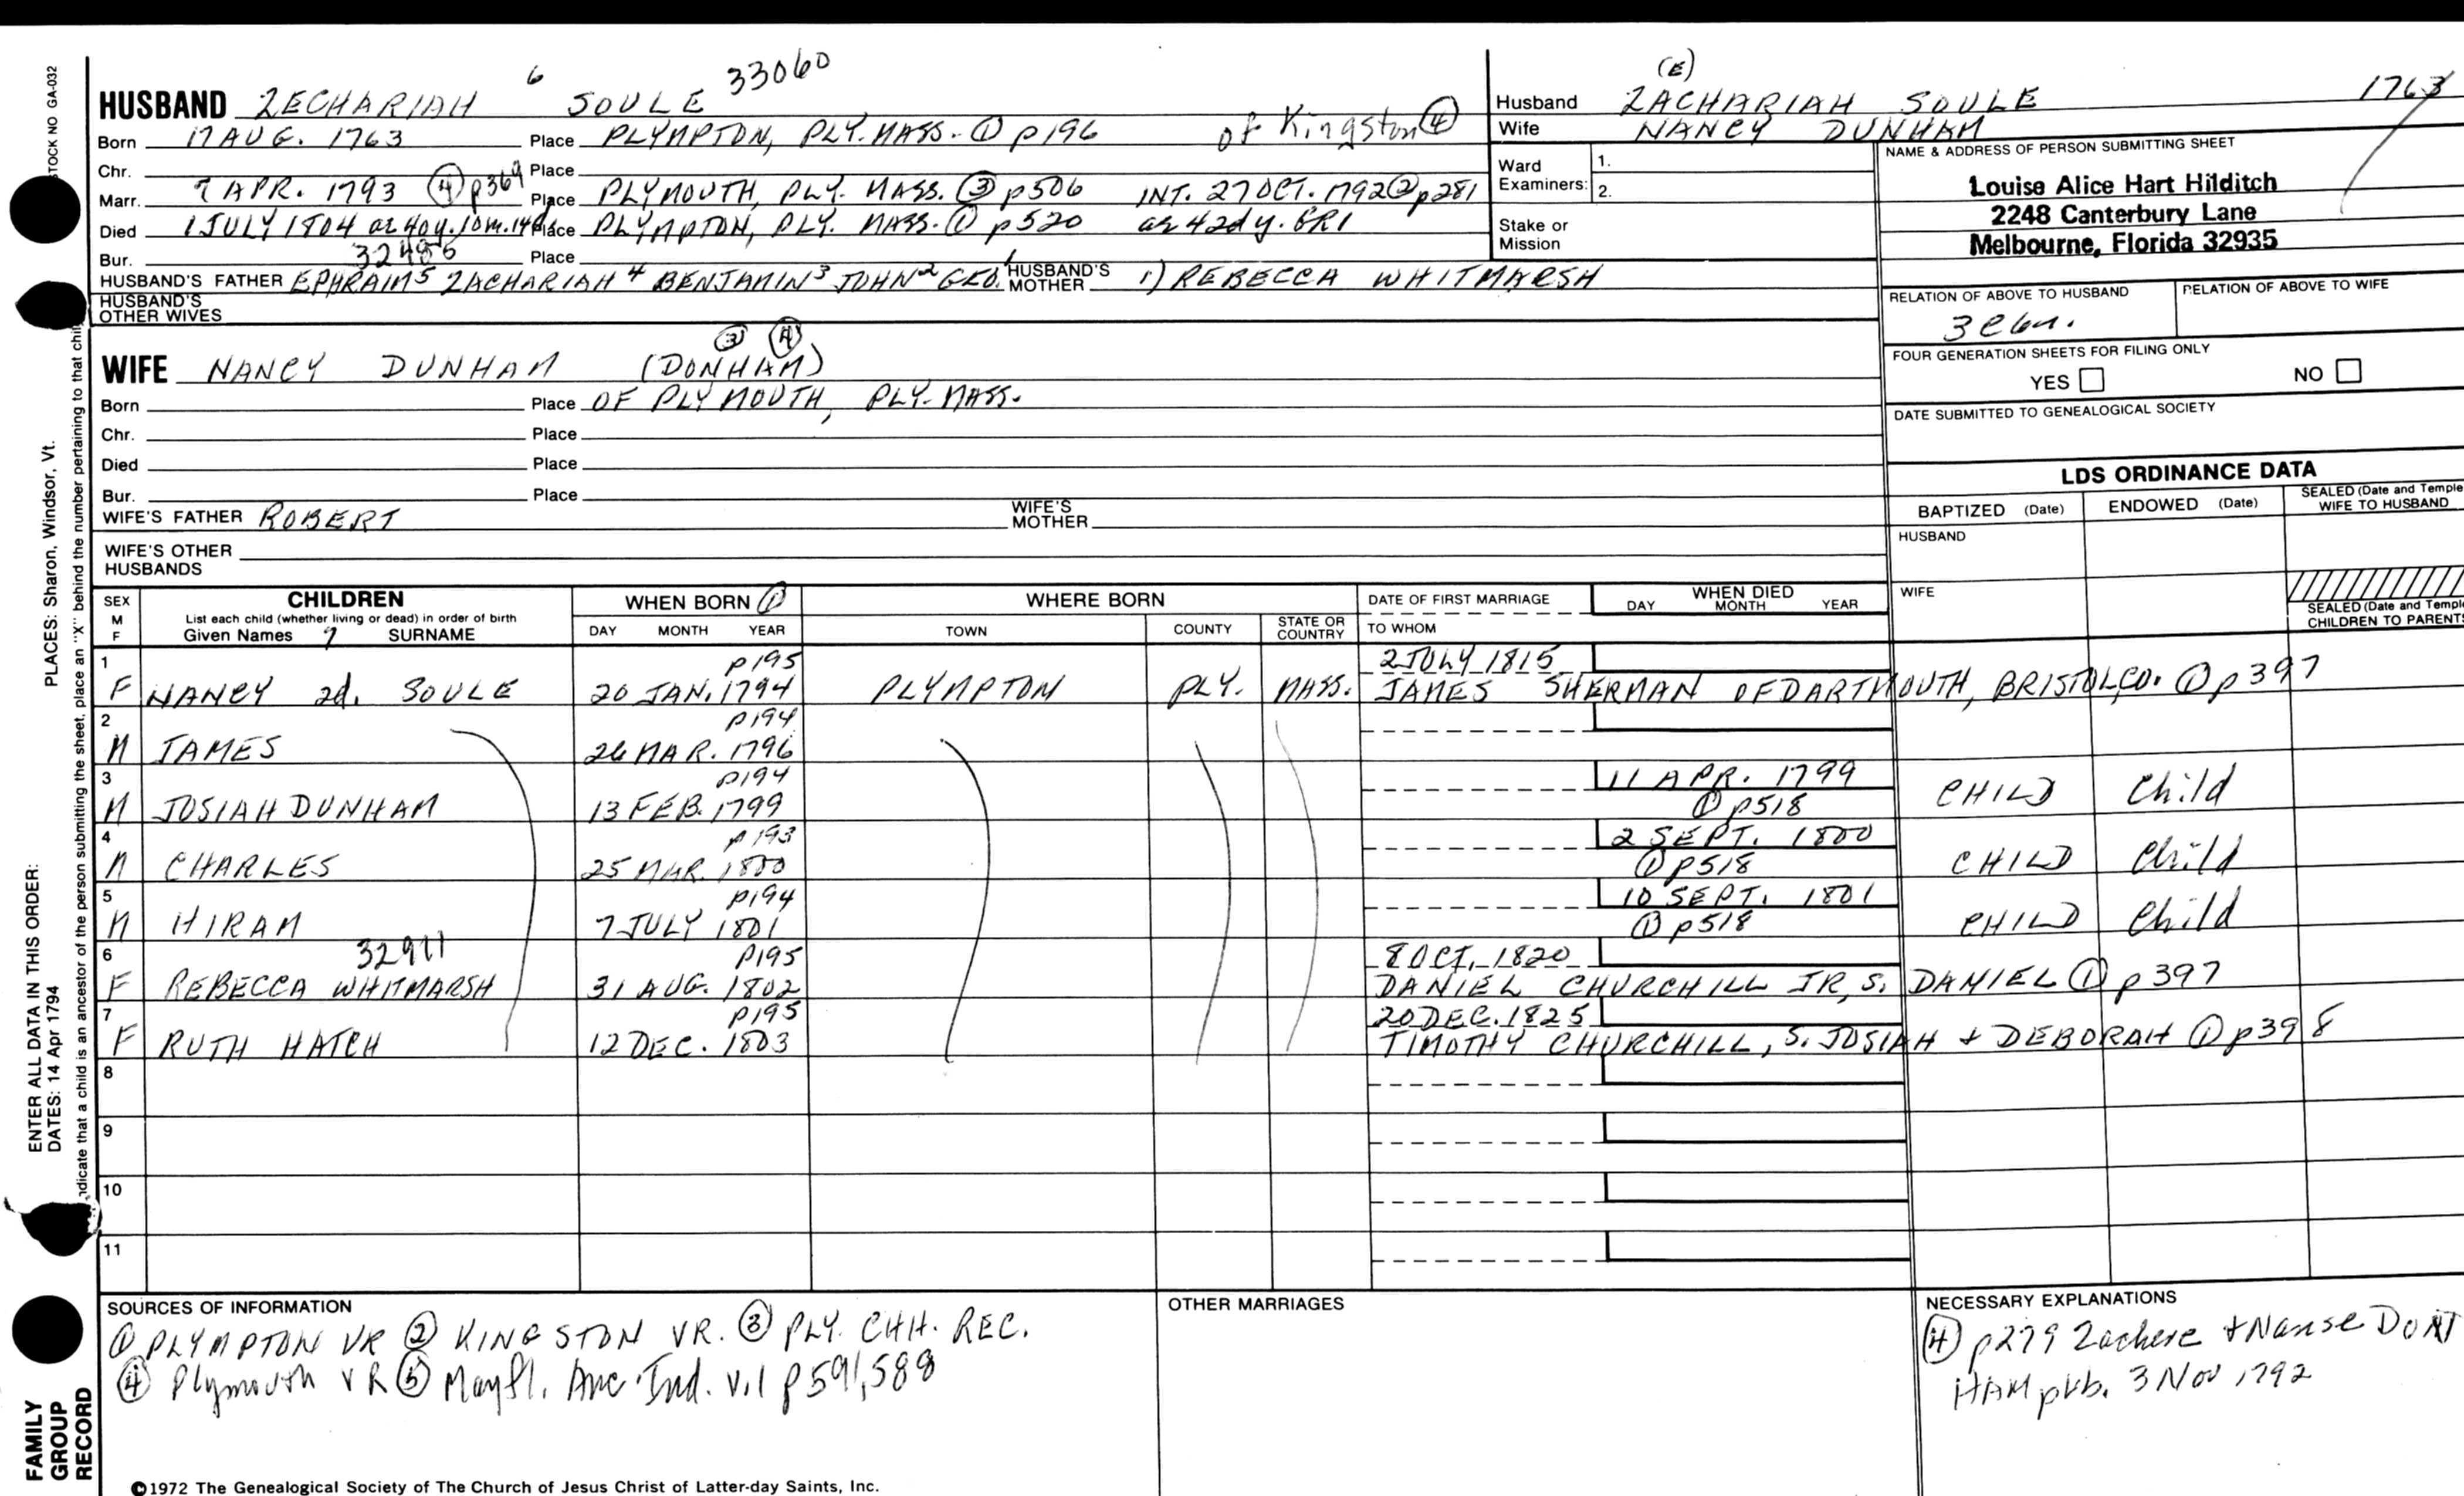 STOCK NO GA-032
PLACES: Sharon, Windsor, Vt.
ENTER ALL DATA IN THIS ORDER:
DATES: 14 Apr 1794
indicate that a child is an ancestor of the person submitting the sheet, place an "X" behind the number pertaining to that child
FAMILY
GROUP
RECORD
HUSBAND ZECHARIAH 6 SOULE 33060
Born 17 AUG. 1763 Place PLYMPTON, PLY. MASS. ① p196 of Kingston ④
Chr. Place
Marr. 7 APR. 1793 ④ p369 Place PLYMOUTH, PLY. MASS. ③ p506 INT. 27 OCT. 1792 ② p281
Died 1 JULY 1804 ae 40y. 10m. 14d Place PLYMPTON, PLY. MASS. ① p520 ae 42d y. GR1
Bur. 32486 Place
HUSBAND'S FATHER EPHRAIM 5 ZACHARIAH 4 BENJAMIN 3 JOHN 2 GEO. 1 HUSBAND'S MOTHER 1) REBECCA WHITMARSH
HUSBAND'S
OTHER WIVES
③ ④
WIFE NANCY DUNHAM (DONHAM)
Born Place OF PLYMOUTH, PLY. MASS.
Chr. Place
Died Place
Bur. Place
WIFE'S FATHER ROBERT WIFE'S MOTHER
WIFE'S OTHER
HUSBANDS
(E)
Husband ZACHARIAH SOULE 1763
Wife NANCY DUNHAM
Ward
Examiners: 1.
2.
Stake or
Mission
NAME & ADDRESS OF PERSON SUBMITTING SHEET
Louise Alice Hart Hilditch
2248 Canterbury Lane
Melbourne, Florida 32935
RELATION OF ABOVE TO HUSBAND RELATION OF ABOVE TO WIFE
FOUR GENERATION SHEETS FOR FILING ONLY
YES NO
DATE SUBMITTED TO GENEALOGICAL SOCIETY
LDS ORDINANCE DATA
BAPTIZED (Date) ENDOWED (Date) SEALED (Date and Temple) WIFE TO HUSBAND
HUSBAND
WIFE
SEALED (Date and Temple) CHILDREN TO PARENTS
SEX M F CHILDREN WHEN BORN ① WHERE BORN DATE OF FIRST MARRIAGE WHEN DIED
List each child (whether living or dead) in order of birth
Given Names 7 SURNAME DAY MONTH YEAR TOWN COUNTY STATE OR COUNTRY TO WHOM DAY MONTH YEAR
1 p195 2 JULY 1815
F NANCY 2d. SOULE 20 JAN. 1794 PLYMPTON PLY. MASS. JAMES SHERMAN OF DARTMOUTH, BRISTOL CO. ① p397
2 p194
M JAMES 26 MAR. 1796
3 p194 11 APR. 1799
M JOSIAH DUNHAM 13 FEB. 1799 ① p518 CHILD Child
4 p193 2 SEPT. 1800
M CHARLES 25 MAR. 1800 ① p518 CHILD Child
5 p194 10 SEPT. 1801
M HIRAM 7 JULY 1801 ① p518 CHILD Child
6 32911 p195 8 OCT. 1820
F REBECCA WHITMARSH 31 AUG. 1802 DANIEL CHURCHILL JR, S. DANIEL ① p397
7 p195 20 DEC. 1825
F RUTH HATCH 12 DEC. 1803 TIMOTHY CHURCHILL, S. JOSIAH + DEBORAH ① p398
8
9
10
11
SOURCES OF INFORMATION
① PLYMPTON VR ② KINGSTON VR. ③ PLY. CHH. REC.
④ Plymouth VR ⑤ Mayfl. Anc. Ind. v.1 p591,588
OTHER MARRIAGES
NECESSARY EXPLANATIONS
④ p279 Zachere + Nanse DON
HAM pub. 3 Nov 1792
©1972 The Genealogical Society of The Church of Jesus Christ of Latter-day Saints, Inc.